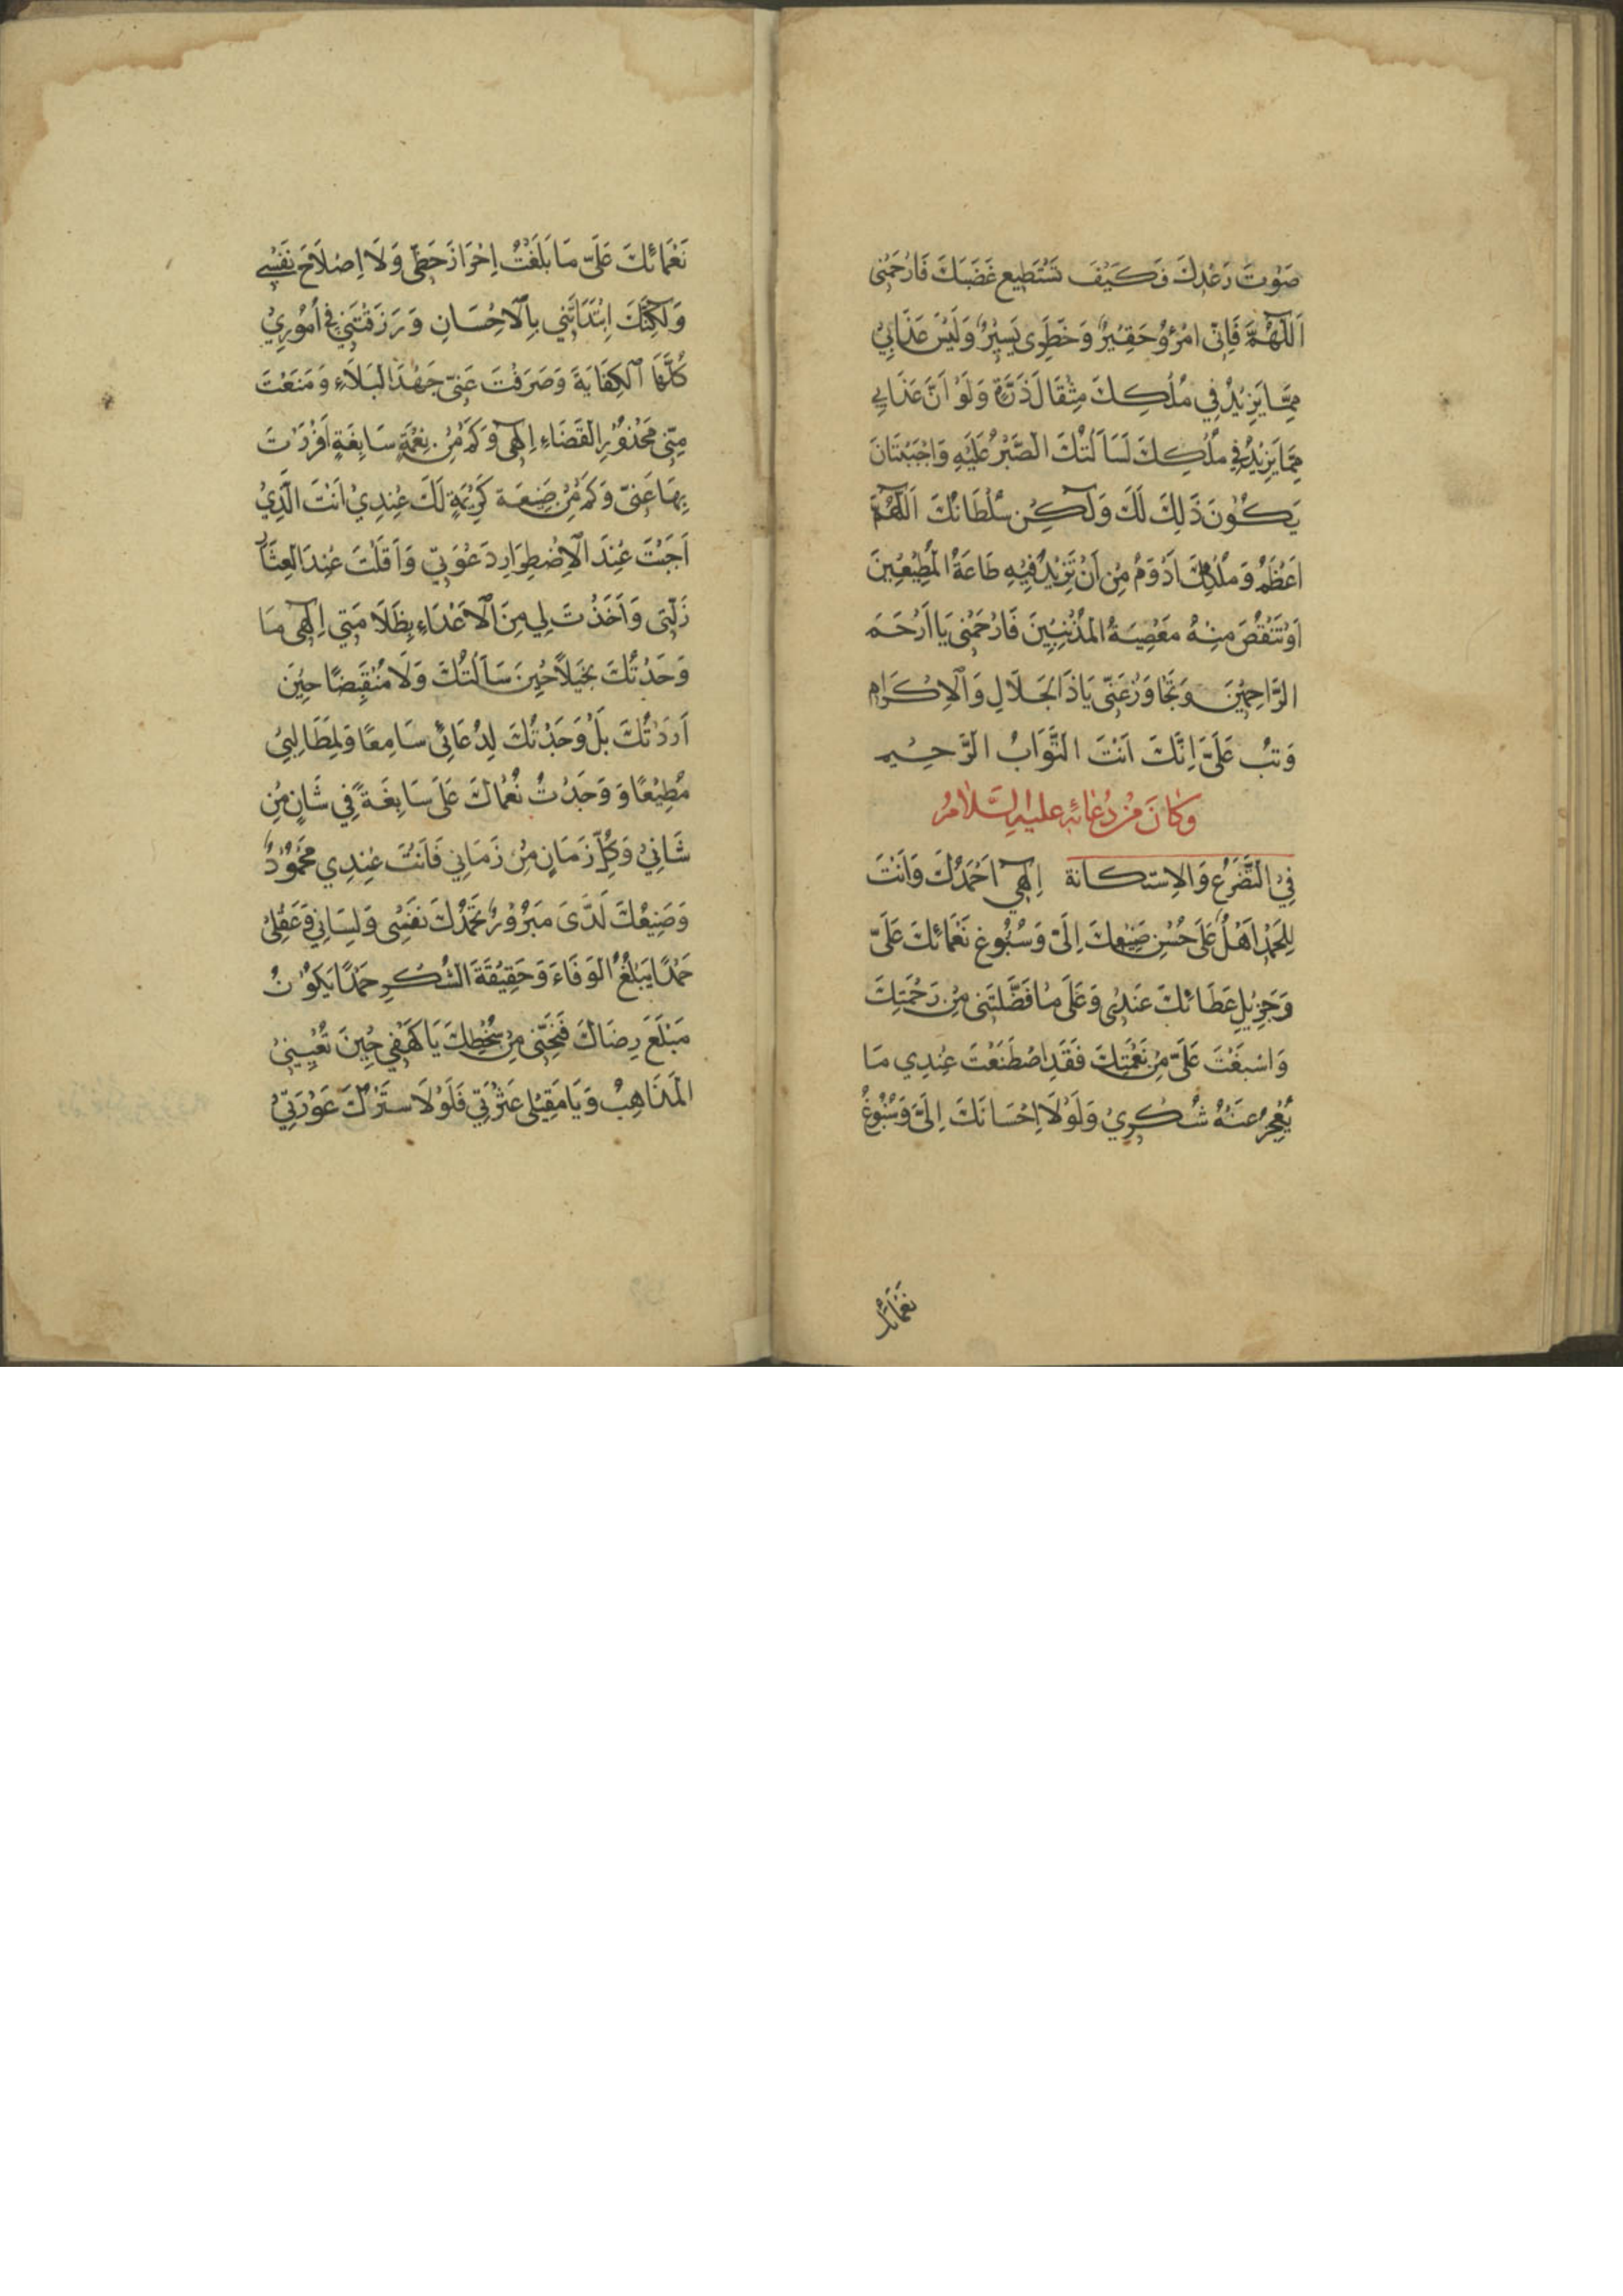 صَوْتَ رَعْدِكَ فَكَيْفَ تَسْتَطِيع غَضَبَكَ فَارْحَمْنِى
اَللّٰهُمَّ فَاِنّى امْرُؤٌ حَقِيْرٌ وَخَطَرِى يَسِيْرٌ وَلَيْسَ عَذَابِيْ
مِمَّا يَزِيْدُ فِي مُلْكِكَ مِثْقَالَ ذَرَّةٍ وَلَوْ اَنَّ عَذَابِي
مِمَّا يَزِيْدُ فِي مُلْكِكَ لَسَاَلْتُكَ الصَّبْرَ عَلَيْهِ وَاَحْبَبْتُ اَنْ
يَكُوْنَ ذَلِكَ لَكَ وَلٰكِنْ سُلْطَانُكَ اَللّٰهُمَّ
اَعْظَمُ وَمُلْكُكَ اَدْوَمُ مِنْ اَنْ تَزِيْدَ فِيْهِ طَاعَةُ الْمُطِيْعِيْنَ
اَوْ تَنْقُصَ مِنْهُ مَعْصِيَةُ الْمُذْنِبِيْنَ فَارْحَمْنِى يَا اَرْحَمَ
الرَّاحِمِيْنَ وَتَجَاوَزْ عَنّى يَا ذَا الْجَلَالِ وَالْاِكْرَامِ
وَتُبْ عَلَيَّ اِنَّكَ اَنْتَ التَّوَّابُ الرَّحِيْم
وَكَانَ مِنْ دُعَائِهِ عليه السَّلامُ
فِي التَّضَرُّعِ وَالاِسْتِكَانة اِلٰهِي اَحْمَدُكَ وَاَنْتَ
لِلْحَمْدِ اَهْلٌ عَلَى حُسْنِ صَنِيْعِكَ اِلَىَّ وَسُبُوْغِ نَعْمَائِكَ عَلَىَّ
وَجَزِيْلِ عَطَائِكَ عِنْدِى وَعَلَى مَا فَضَّلْتَنِى مِنْ رَحْمَتِكَ
وَاَسْبَغْتَ عَلَىَّ مِنْ نِعْمَتِكَ فَقَدِ اصْطَنَعْتَ عِنْدِي مَا
يُعْجِزُ عَنْهُ شُكْرِيْ وَلَوْلَا اِحْسَانُكَ اِلَىَّ وَسُبُوْغُ
نَعْمَائِكَ
نَعْمَائِكَ عَلَىَّ مَا بَلَغْتُ اِحْرَازَ حَظِّى وَلَا اِصْلَاحَ نَفْسِي
وَلٰكِنَّكَ اِبْتَدَاْتَنِي بِالْاِحْسَانِ وَرَزَقْتَنِي فِي اُمُوْرِيْ
كُلِّهَا الْكِفَايَةَ وَصَرَفْتَ عَنّى جَهْدَ الْبَلَاءِ وَمَنَعْتَ
مِنّى مَحْذُوْرَ الْقَضَاءِ اِلٰهِى وَكَمْ مِنْ نِعْمَةٍ سَابِغَةٍ اَقْرَرْتَ
بِهَا عَيْنى وَكَمْ مِنْ صَنِيعَةٍ كَرِيْمَةٍ لَكَ عِنْدِيْ اَنْتَ الَّذِيْ
اَجَبْتَ عِنْدَ الْاِضْطِرَارِ دَعْوَتِي وَاَقَلْتَ عِنْدَ الْعِثَارِ
زَلَّتِى وَاَخَذْتَ لِي مِنَ الْاَعْدَاءِ بِظَلَامَتِي اِلٰهِى مَا
وَجَدْتُكَ بَخِيْلاً حِيْنَ سَاَلْتُكَ وَلَا مُنْقَبِضًا حِيْنَ
اَرَدْتُكَ بَلْ وَجَدْتُكَ لِدُعَائِي سَامِعًا وَلِمَطَالِبِيْ
مُطِيْعًا وَ وَجَدْتُ نُعْمَاكَ عَلَى سَابِغَةً فِي شَانٍ مِنْ
شَانِيْ وَكُلِّ زَمَانٍ مِنْ زَمَانِي فَاَنْتَ عِنْدِي مَحْمُوْدٌ
وَصَنِيْعُكَ لَدَىَّ مَبْرُوْرٌ تَحْمَدُكَ نَفْسِى وَلِسَانِي وَعَقْلِيْ
حَمْدًا يَبْلُغُ الْوَفَاءَ وَحَقِيْقَةَ الشُّكْرِ حَمْدًا يَكُوْنُ
مَبْلَغَ رِضَاكَ فَنَجِّنِى مِنْ سُخْطِكَ يَا كَهْفِي حِيْنَ تُعْيِيْنِيْ
الْمَذَاهِبُ وَيَا مُقِيْلِى عَثْرَتِي فَلَوْلَا سَتْرُكَ عَوْرَتِيْ